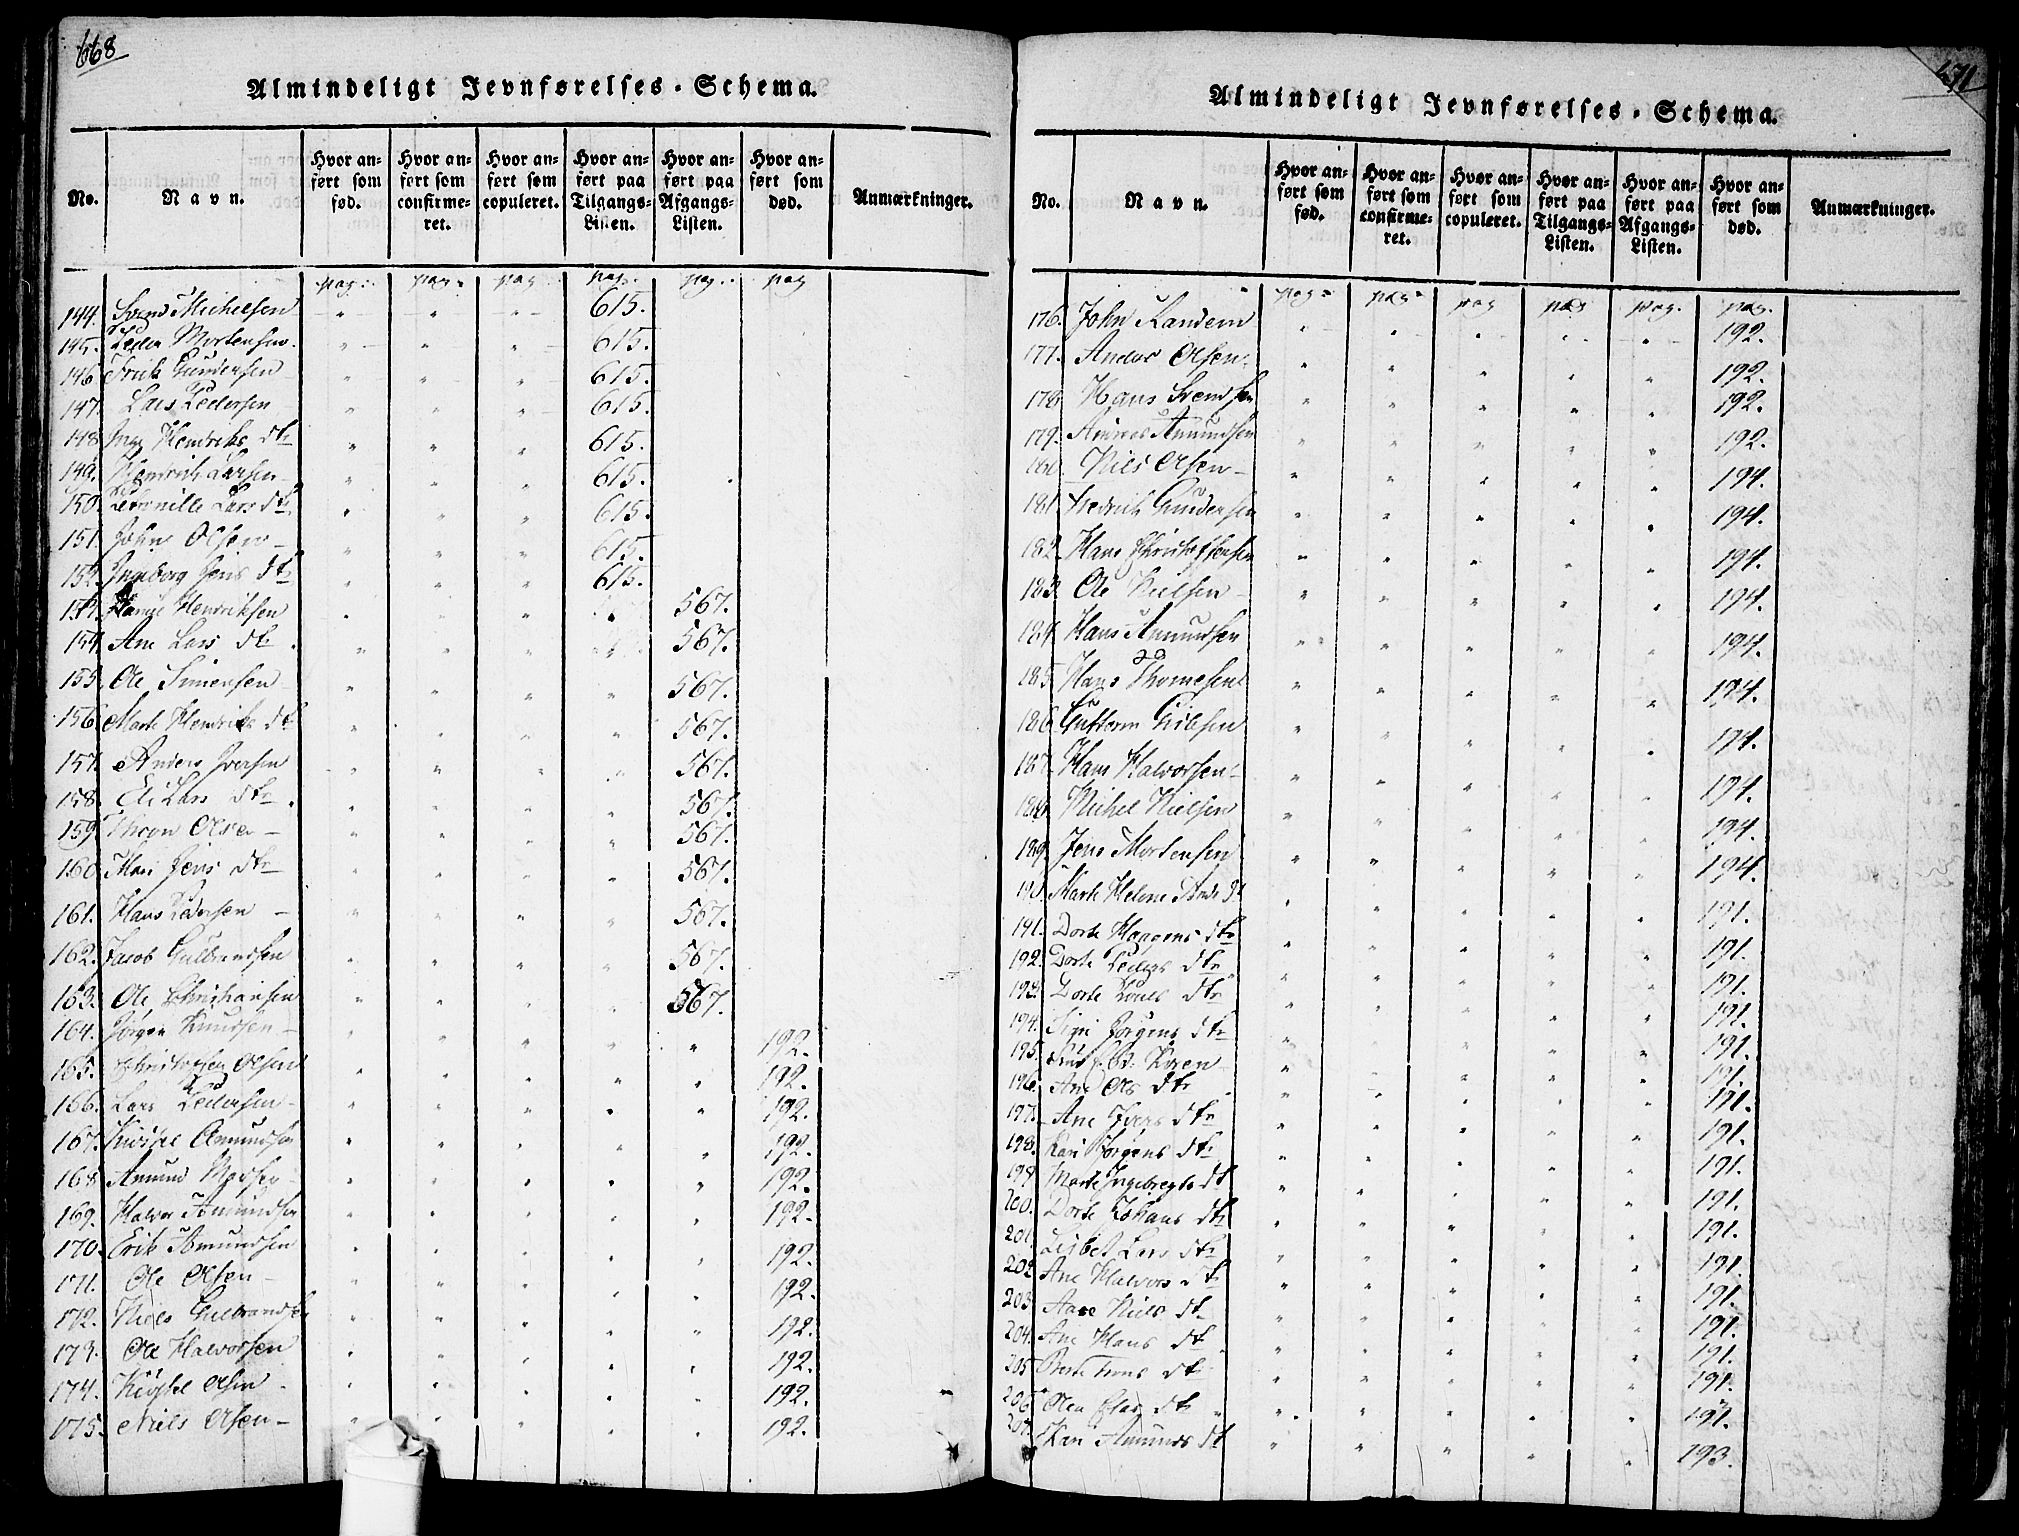 668
Almindeligt Jevnførelses-Schema.
No. Navn. Hvor anført som fød. Hvor anført som confirmeret. Hvor anført som copuleret. Hvor anført paa Tilgangs-Listen. Hvor anført paa Afgangs-Listen. Hvor anført som død. Anmærkninger.
pag. pag. pag pag. pag. pag
144. Svend Michelsen 615.
145. Peder Mortensen 615.
146 Gundersen 615.
147. Lars Pedersen 615.
148 Hendriks dtr 615.
149. Hendrich Larsen 615.
150. Petronille Lars dtr 615.
151. John Olsen 615.
152. Ingeborg Jens dtr 615.
153. Hendriksen 567.
154. Ane Lars dtr 567.
155. Ole Simensen 567.
156. Marte Hendriks dt 567.
157. Anders Iversen 567.
158. Eli Lars dtr 567.
159. Olsen 567.
160. Mari Jens dtr 567.
161. Hans Pedersen 567.
162. Jacob Gulbrandsen 567.
163. Ole Christiansen 567.
164. Jørgen Knudsen 192.
165. Christopher Olsen 192.
166. Lars Pedersen 192.
167. Amundsen 192.
168. Amund 192.
169. Halvor Amundsen 192.
170. Erik Amundsen 192.
171. Ole Olsen 192.
172. Niels Gulbrandsen 192.
173. Ole Halvorsen 192.
174. Olsen 192.
175. Niels Olsen 192.
671
Almindeligt Jevnførelses-Schema.
No. Navn. Hvor anført som fød. Hvor anført som confirmeret. Hvor anført som copuleret. Hvor anført paa Tilgangs-Listen. Hvor anført paa Afgangs-Listen. Hvor anført som død. Anmærkninger.
pag. pag. pag pag pag. pag.
176. John Randem 192.
177. Anders Olsen 192.
178. Hans Svendsen 192.
179. Andreas Amundsen 192.
180. Nils Olsen 194.
181. Fredrich Gundersen 194.
182. Hans Christophersen 194.
183. Ole Nielsen 194.
184. Hans Amundsen 194.
185. Hans Thomesen 194.
186. Guttorm 194.
187. Hans Halvorsen 194.
188. Michel Nielsen 194.
189. Jens Mortensen 194.
190. Marte Helene 191.
191. Dorte Haagens dtr 191.
192. Dorte Peders dtr 191.
193. Dorte dtr 191.
194. Siri Jørgens dtr 191.
195. 191.
196. Ane Ols dtr 191.
197. Ane Ivers dtr 191.
198. Kari Jørgens dtr 191.
199 Marte Ingebregts dt 191.
200. Dorte Johans dtr 191.
201. Lisbet Lars dtr 191.
202 Ane Halvors dtr 191.
203 Aase Niels dt 191.
204. Ane Hans dtr 191.
205 Berte dtr 191.
206 Olea dtr 191.
207. Kari Amunds dt 193.